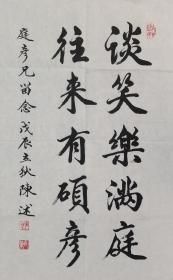 谈笑樂满庭
往来有碩彦
庭彦兄留念戊辰立秋陳述